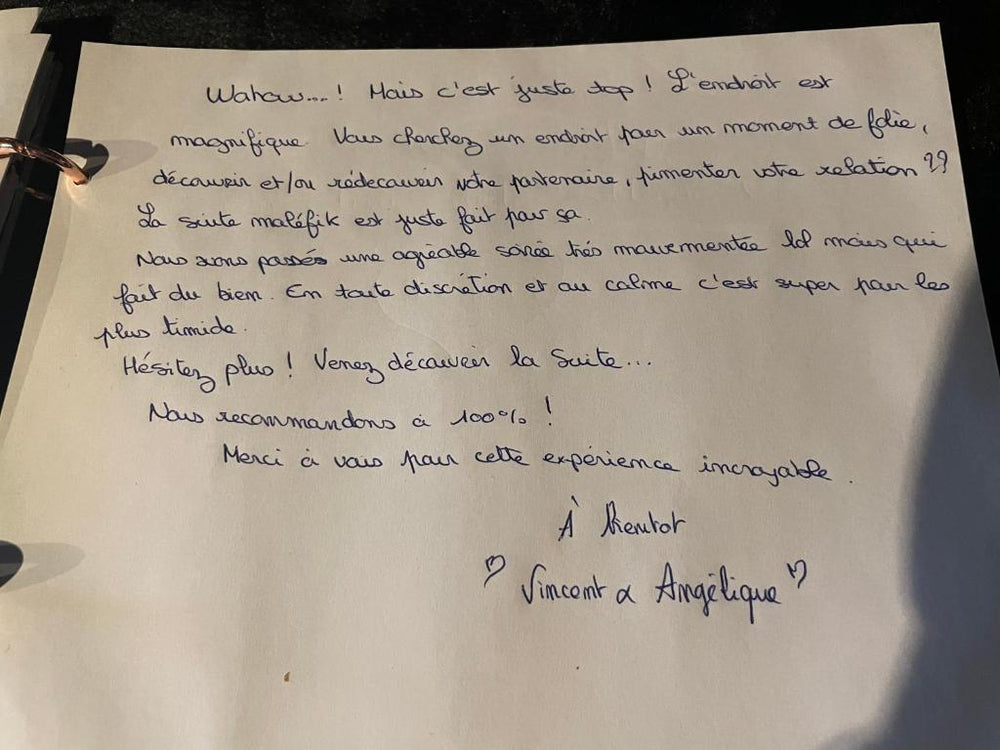 Wahou....! Mais c'est juste top ! L'endroit est
magnifique. Vous cherchez un endroit pour un moment de folie,
découvrir et/ou rédecouvrir votre partenaire, pimenter votre relation ??
La suite maléfik est juste fait pour sa.
Nous avons passés une agréable soirée très mouvementée lol mais qui
fait du bien. En toute discrétion et au calme c'est super pour les
plus timide.
Hésitez plus ! Venez découvrir la Suite...
Nous recommandons à 100% !
Merci à vous pour cette expérience incroyable.
À bientot
♡ Vincent & Angélique ♡